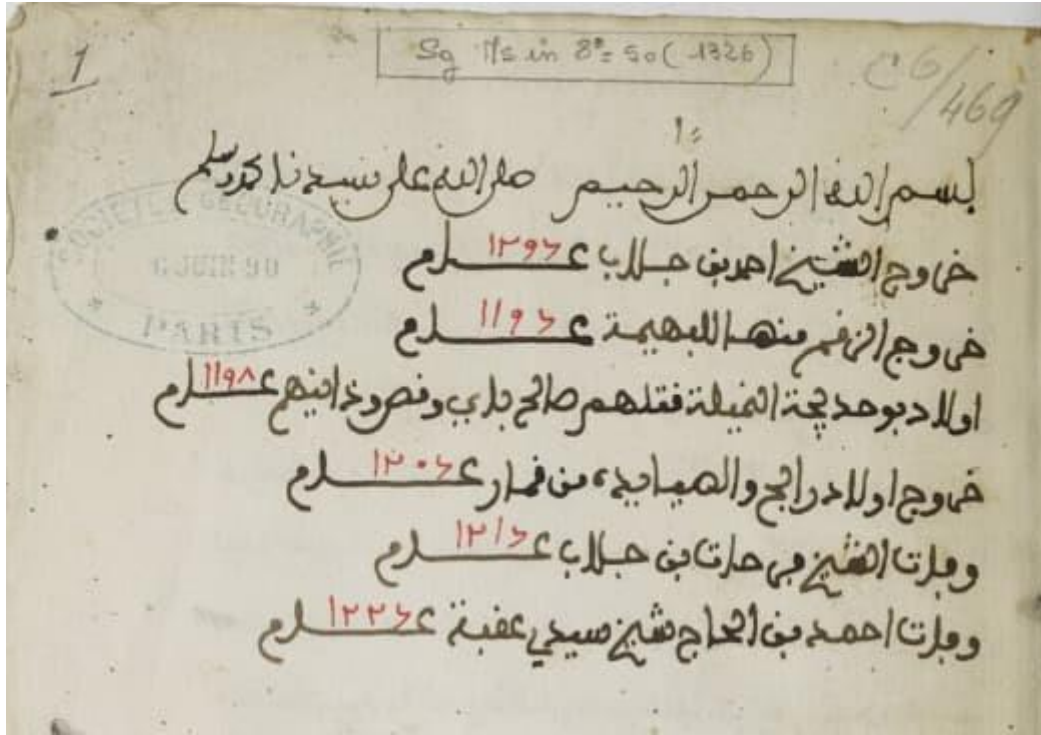 1
Sg Ms in 8° = 50 (1326)
C 6/469
SOCIÉTÉ DE GÉOGRAPHIE
6 JUIN 90
PARIS
بسم الله الرحمن الرحيم صلى الله على سيدنا محمد وسلم
خروج الشيخ احمد بن جلاب عـــام
خروج الزقم منها للبهيمة عـــام
اولاد بوحديجة النميلة فتلهم صالح باي وفصر وذانيهم عـــام ١١٩٨
خروج اولاد رابح والصيايدة من فمار عـــام
وفات الشيخ فرحات بن جلاب عـــام
وفات احمد بن الحاج شيخ سيدي عفبة عـــام